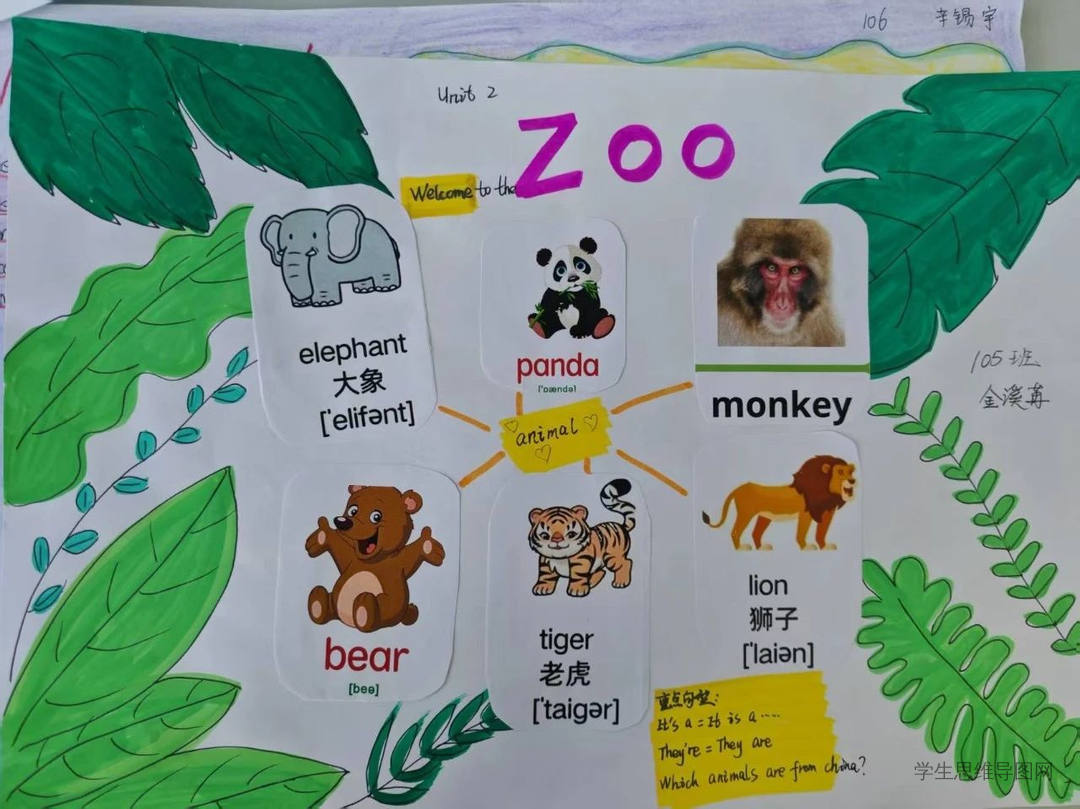 106 辛锡宇
Unit 2
ZOO
Welcome to the
elephant
大象
['elifənt]
panda
['pændə]
monkey
animal
105班
金溪苒
bear
[beə]
tiger
老虎
['taigər]
lion
狮子
['laiən]
重点句型:
It's a = It is a ....
They're = They are
Which animals are from china?
学生思维导图网